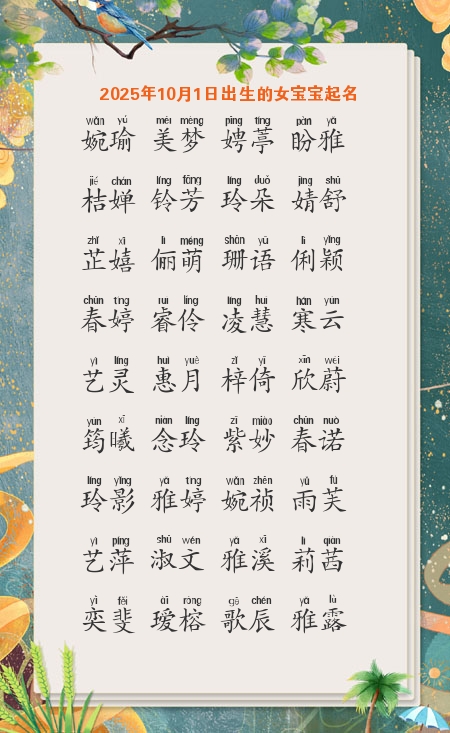 2025年10月1日出生的女宝宝起名
wǎn yú měi mèng pīng tíng pàn yǎ
婉瑜 美梦 娉葶 盼雅
jié chán líng fāng líng duǒ jìng shū
桔婵 铃芳 玲朵 婧舒
zhǐ xī lì méng shān yǔ lì yǐng
芷嬉 俪萌 珊语 俐颖
chūn tíng ruì líng líng huì hán yún
春婷 睿伶 凌慧 寒云
yì líng huì yuè zǐ yǐ xīn wèi
艺灵 惠月 梓倚 欣蔚
yún xī niàn líng zǐ miào chūn nuò
筠曦 念玲 紫妙 春诺
líng yǐng yǎ tíng wǎn zhēn yǔ fú
玲影 雅婷 婉祯 雨芙
yì píng shū wén yǎ xī lì qiàn
艺萍 淑文 雅溪 莉茜
yì fěi ài róng gē chén yǎ lù
奕斐 瑷榕 歌辰 雅露